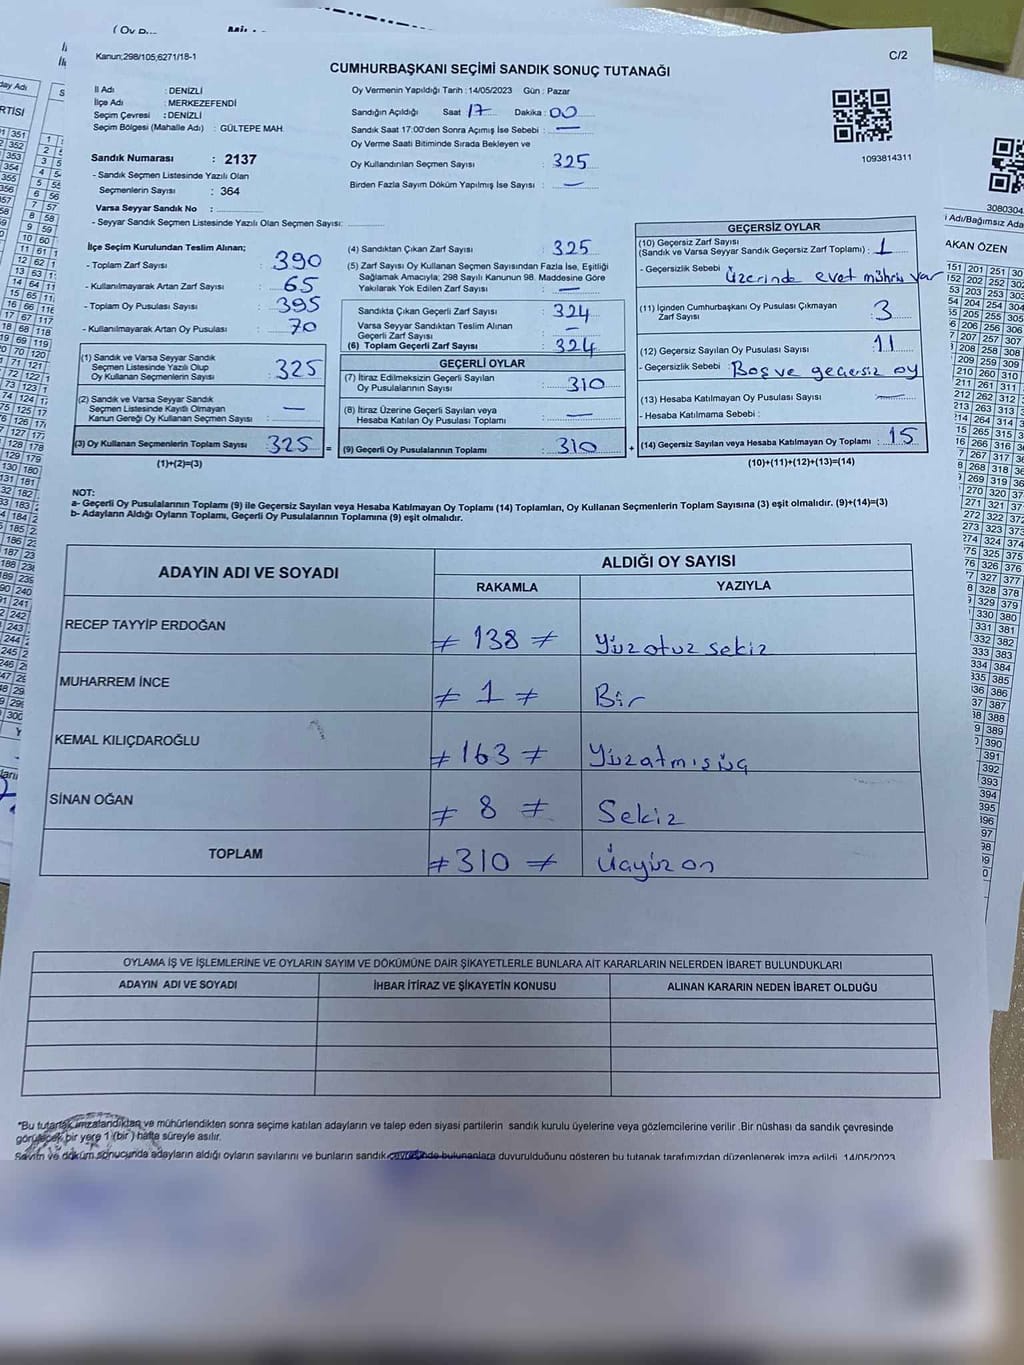 ( Oy
Kanun;298/105;6271/18-1
C/2
CUMHURBAŞKANI SEÇİMİ SANDIK SONUÇ TUTANAĞI
İl Adı : DENİZLİ
İlçe Adı : MERKEZEFENDİ
Seçim Çevresi : DENİZLİ
Seçim Bölgesi (Mahalle Adı) : GÜLTEPE MAH.
Oy Vermenin Yapıldığı Tarih : 14/05/2023 Gün : Pazar
Sandığın Açıldığı Saat 17 Dakika : 00
Sandık Saat 17:00'den Sonra Açımış İse Sebebi : —
Oy Verme Saati Bitiminde Sırada Bekleyen ve
Oy Kullandırılan Seçmen Sayısı : 325
Birden Fazla Sayım Döküm Yapılmış İse Sayısı : —
1093814311
Sandık Numarası : 2137
- Sandık Seçmen Listesinde Yazılı Olan
Seçmenlerin Sayısı : 364
Varsa Seyyar Sandık No :
- Seyyar Sandık Seçmen Listesinde Yazılı Olan Seçmen Sayısı:
İlçe Seçim Kurulundan Teslim Alınan;
- Toplam Zarf Sayısı : 390
- Kullanılmayarak Artan Zarf Sayısı : 65
- Toplam Oy Pusulası Sayısı : 395
- Kullanılmayarak Artan Oy Pusulası : 70
(1) Sandık ve Varsa Seyyar Sandık
Seçmen Listesinde Yazılı Olup
Oy Kullanan Seçmenlerin Sayısı : 325
(2) Sandık ve Varsa Seyyar Sandık
Seçmen Listesinde Kayıtlı Olmayan
Kanun Gereği Oy Kullanan Seçmen Sayısı : —
(3) Oy Kullanan Seçmenlerin Toplam Sayısı : 325
(1)+(2)=(3)
(4) Sandıktan Çıkan Zarf Sayısı : 325
(5) Zarf Sayısı Oy Kullanan Seçmen Sayısından Fazla İse, Eşitliği
Sağlamak Amacıyla; 298 Sayılı Kanunun 98. Maddesine Göre
Yakılarak Yok Edilen Zarf Sayısı : —
Sandıkta Çıkan Geçerli Zarf Sayısı : 324
Varsa Seyyar Sandıktan Teslim Alınan
Geçerli Zarf Sayısı : —
(6) Toplam Geçerli Zarf Sayısı : 324
GEÇERLİ OYLAR
(7) İtiraz Edilmeksizin Geçerli Sayılan
Oy Pusulalarının Sayısı : 310
(8) İtiraz Üzerine Geçerli Sayılan veya
Hesaba Katılan Oy Pusulası Toplamı : —
= (9) Geçerli Oy Pusulalarının Toplamı : 310
GEÇERSİZ OYLAR
(10) Geçersiz Zarf Sayısı
(Sandık ve Varsa Seyyar Sandık Geçersiz Zarf Toplamı) : 1
- Geçersizlik Sebebi : üzerinde evet mührü var
(11) İçinden Cumhurbaşkanı Oy Pusulası Çıkmayan
Zarf Sayısı : 3
(12) Geçersiz Sayılan Oy Pusulası Sayısı : 11
- Geçersizlik Sebebi : Boş ve geçersiz oy
(13) Hesaba Katılmayan Oy Pusulası Sayısı : —
- Hesaba Katılmama Sebebi :
+ (14) Geçersiz Sayılan veya Hesaba Katılmayan Oy Toplamı : 15
(10)+(11)+(12)+(13)=(14)
NOT:
a- Geçerli Oy Pusulalarının Toplamı (9) ile Geçersiz Sayılan veya Hesaba Katılmayan Oy Toplamı (14) Toplamları, Oy Kullanan Seçmenlerin Toplam Sayısına (3) eşit olmalıdır. (9)+(14)=(3)
b- Adayların Aldığı Oyların Toplamı, Geçerli Oy Pusulalarının Toplamına (9) eşit olmalıdır.
ADAYIN ADI VE SOYADI
ALDIĞI OY SAYISI
RAKAMLA YAZIYLA
RECEP TAYYİP ERDOĞAN ≠ 138 ≠ Yüzotuz sekiz
MUHARREM İNCE ≠ 1 ≠ Bir
KEMAL KILIÇDAROĞLU ≠ 163 ≠ Yüzatmışüç
SİNAN OĞAN ≠ 8 ≠ Sekiz
TOPLAM ≠ 310 ≠ Üçyüz on
OYLAMA İŞ VE İŞLEMLERİNE VE OYLARIN SAYIM VE DÖKÜMÜNE DAİR ŞİKAYETLERLE BUNLARA AİT KARARLARIN NELERDEN İBARET BULUNDUKLARI
ADAYIN ADI VE SOYADI İHBAR İTİRAZ VE ŞİKAYETİN KONUSU ALINAN KARARIN NEDEN İBARET OLDUĞU
*Bu tutanak imzalandıktan ve mühürlendikten sonra seçime katılan adayların ve talep eden siyasi partilerin sandık kurulu üyelerine veya gözlemcilerine verilir .Bir nüshası da sandık çevresinde
görülecek bir yere 1 (bir ) hafta süreyle asılır.
Sayım ve döküm sonucunda adayların aldığı oyların sayılarını ve bunların sandık çevresinde bulunanlara duyurulduğunu gösteren bu tutanak tarafımızdan düzenlenerek imza edildi. 14/05/2023
AKAN ÖZEN